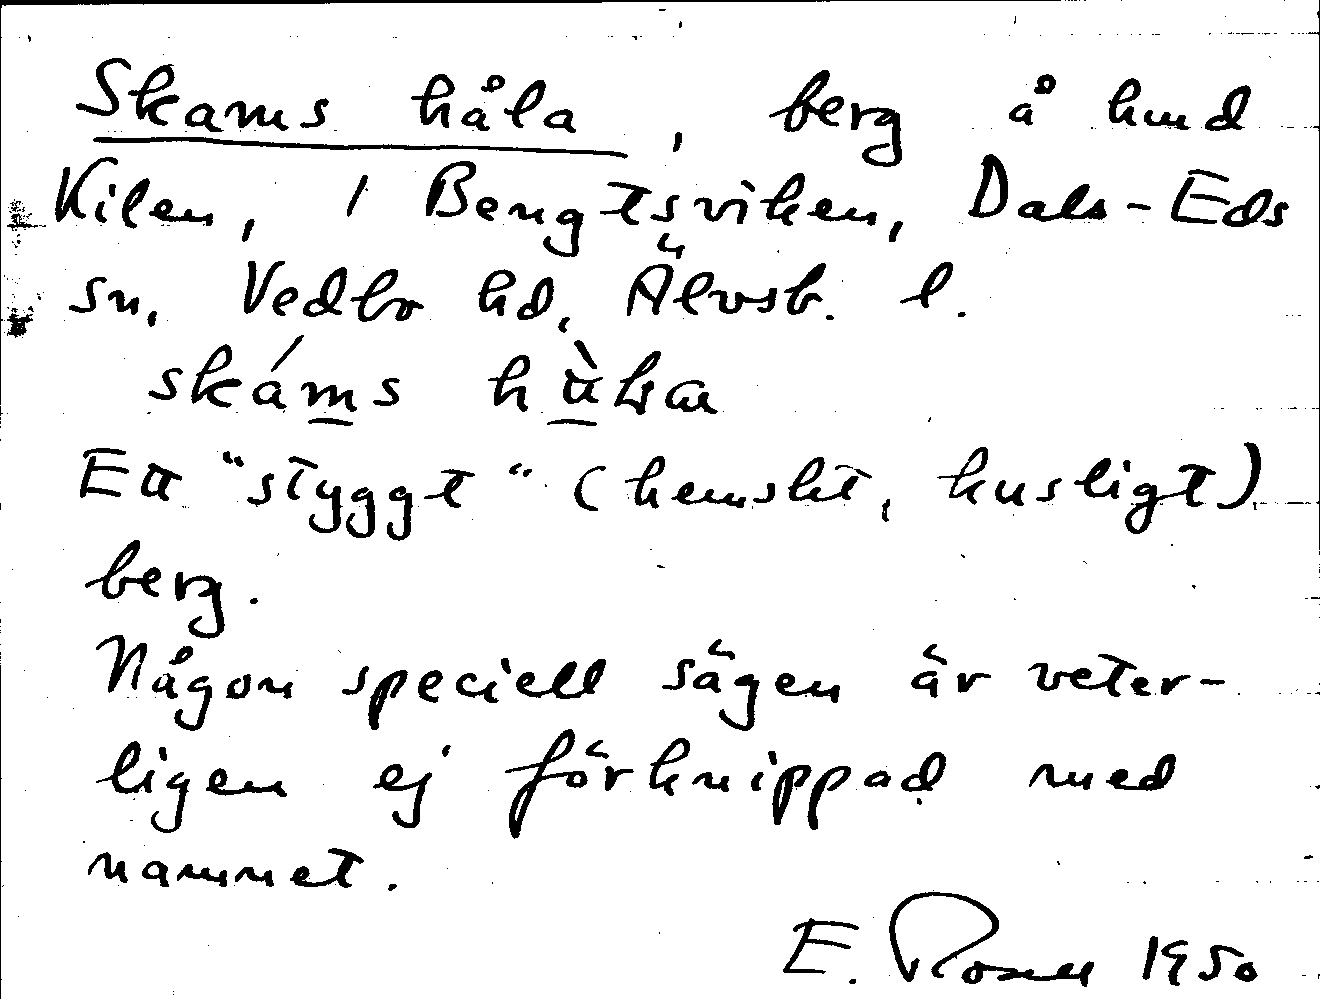 Skams håla, berg å hmd
Kilen, 1 Bengtsviken, Dals-Eds
sn, Vedbo hd, Älvsb. l.
skáms
Ett "styggt" (hemskt, kusligt)
berg.
Någon speciell sägen är veter-
ligen ej förknippad med
namnet.
E. Rosell 1950